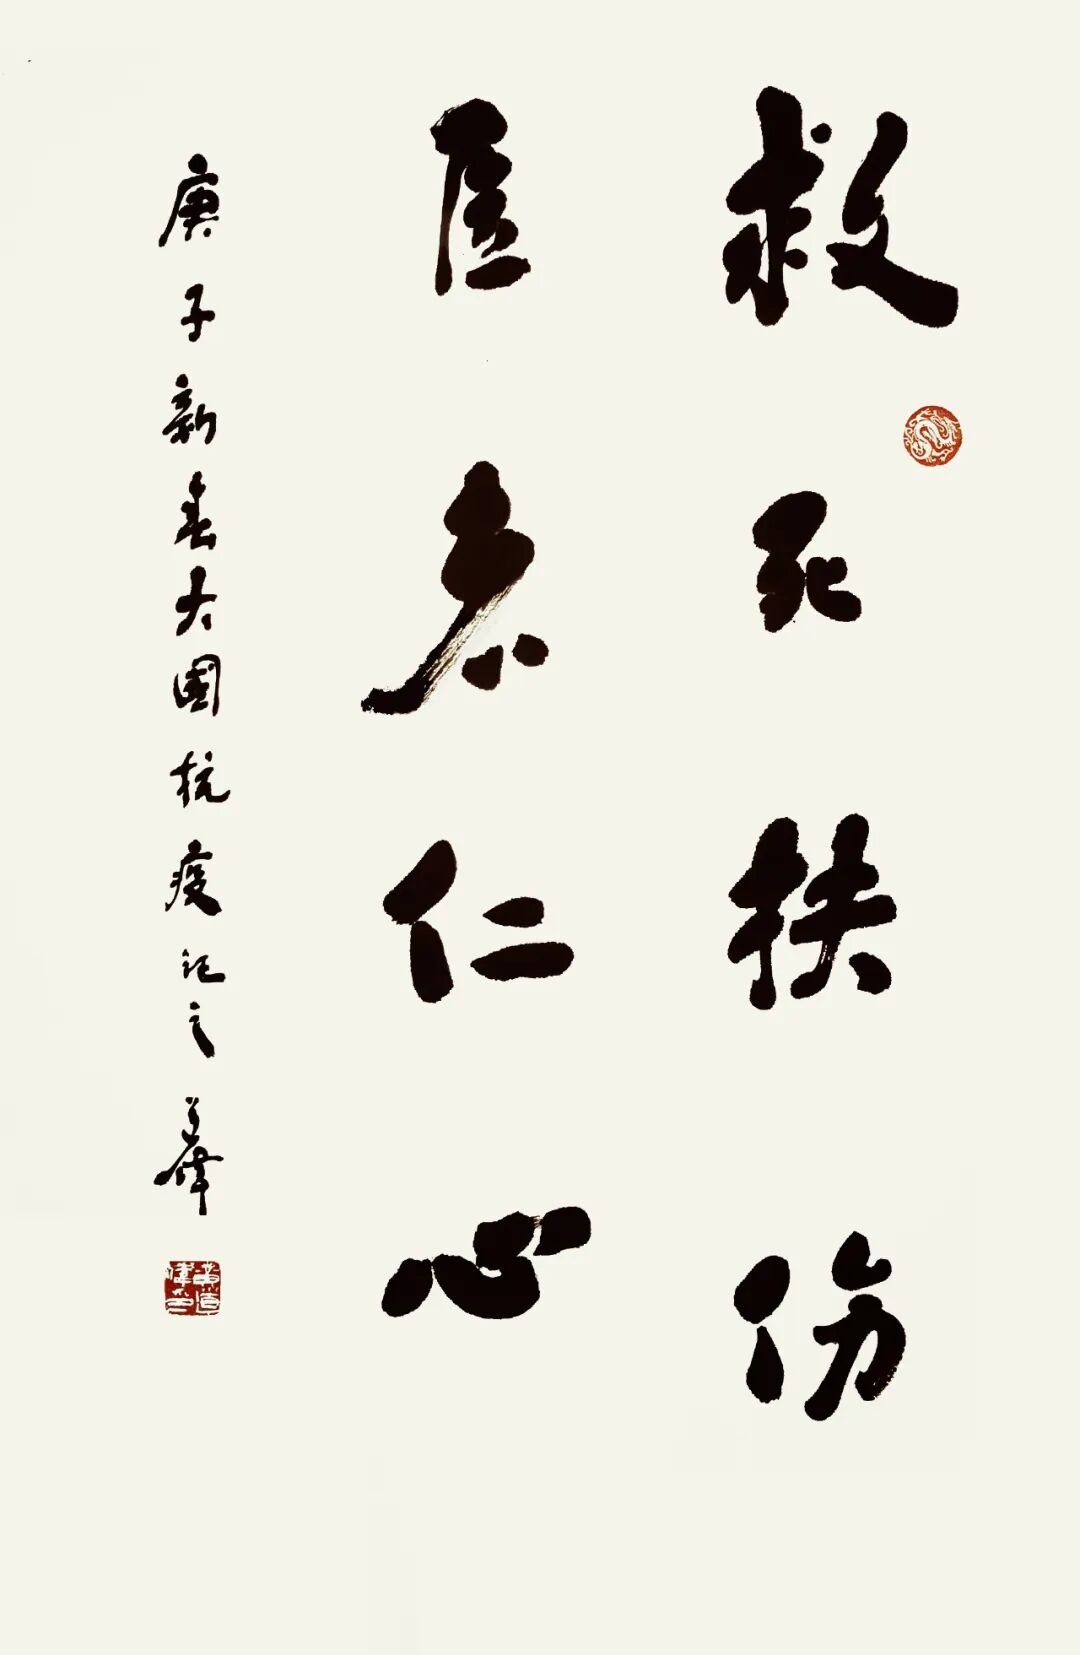 救死扶伤
医者仁心
庚子新春大國抗疫记之道偉